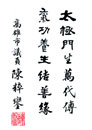 太極門生萬代傳
氣功養生結善緣
高雄市議員 陳梓瓊